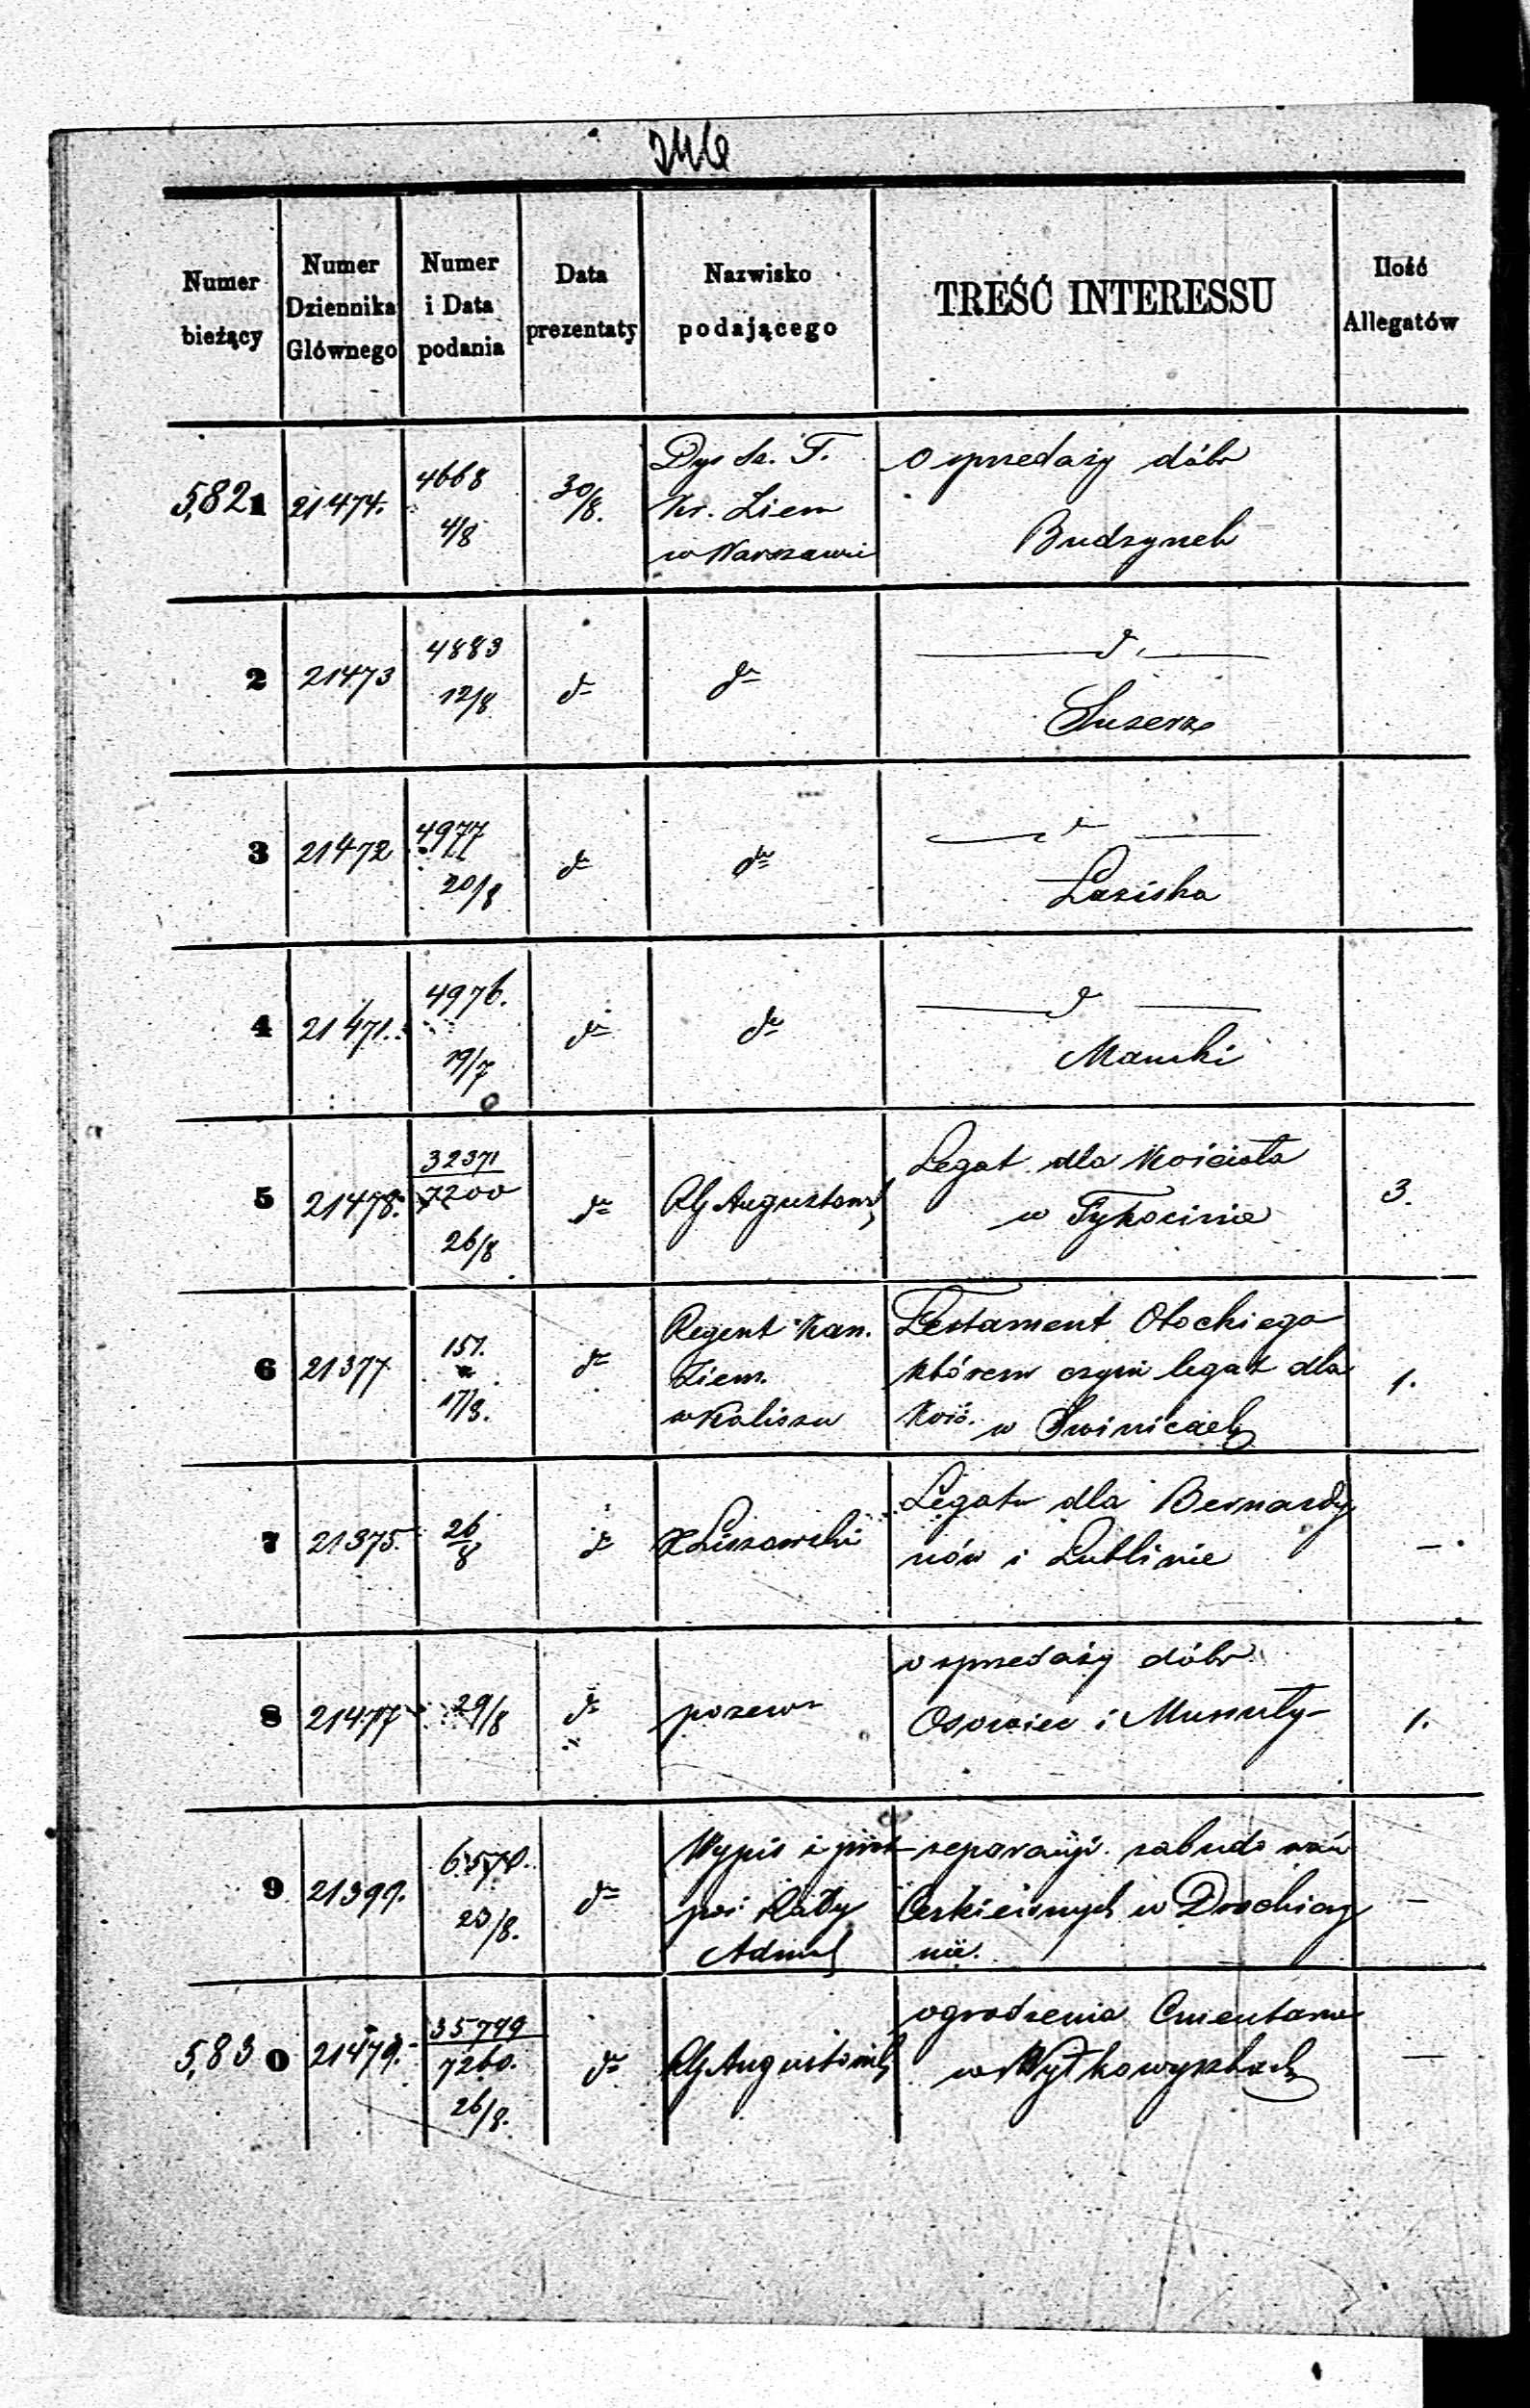 246
Numer bieżący | Numer Dziennika Głównego | Numer i Data podania | Data prezentaty | Nazwisko podającego | TREŚĆ INTERESSU | Ilość Allegatów
5,821 | 21474. | 4668 4/8 | 30/8. | Dyr Sz. T. Kr. Ziem w Warszawie | o sprzedaży dóbr Budzynek
2 | 21473 | 4883 12/8 | do | do | do Suserz
3 | 21472 | 4977 20/8 | do | do | do Laziska
4 | 21471. | 4976. 19/7 | do | do | do
5 | 21478. | 32371 7200 26/8 | do | RG Augustows | Legat dla Kościoła w Tykocinie | 3.
6 | 21377 | 157. 17/8. | do | Regent Kan. Ziem. w Kaliszu | Testament Otockiego którem czyni legat dla Kość. w Swinicach | 1.
7 | 21375. | 26/8 | do | X Liszowski | Legatu dla Bernardy nów i Lublinie | —
8 | 21477 | 29/8 | do | pozew | o sprzedaży dóbr Osowiec i | 1.
9 | 21399. | 6570. 20/8. | do | Wypis z prot poś Rady Adm | reparacyi zabudowań Cerkiewnych w Drochiczy nie. | —
5,830 | 21479. | 35749 7260. 26/8. | do | RG Augustowski | ogrodzenia Cmentarza w Wyłkowyszkach | —